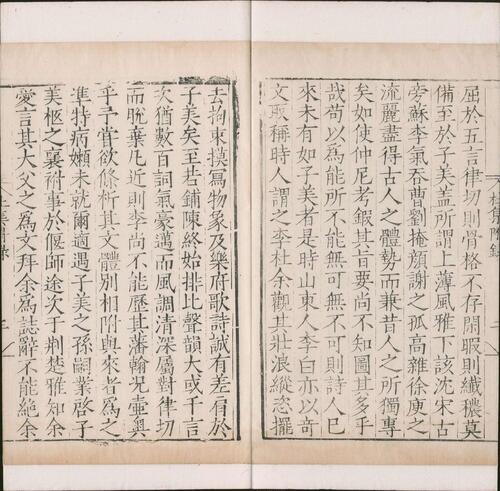 屈於五言律切則骨格不存閑暇則纖穠莫
備至於子美盖所謂上薄風雅下該沈宋古
旁蘇李氣吞曹劉掩顏謝之孤高雜徐庾之
流麗盡得古人之體勢而兼昔人之所獨專
矣如使仲尼考鍜其旨要尚不知圖其多乎
哉苟以為能所不能無可無不可則詩人已
來未有如子美者是時山東人李白亦以奇
文取稱時人謂之李杜余觀其壯浪縱恣擺
去拘束摸寫物象及樂府歌詩誠有差肩於
子美矣至若鋪陳終始排比聲韻大或千言
次猶數百詞氣豪邁而風調清深屬對律切
而脫棄凡近則李尚不能歷其藩翰况壺奧
乎予嘗欲條析其文體別相附與來者為之
準特病嬾未就爾適遇子美之孫嗣業啓子
美柩之襄祔事於偃師途次于荆楚雅知余
愛言其大父之為文拜余為誌辭不能絶余